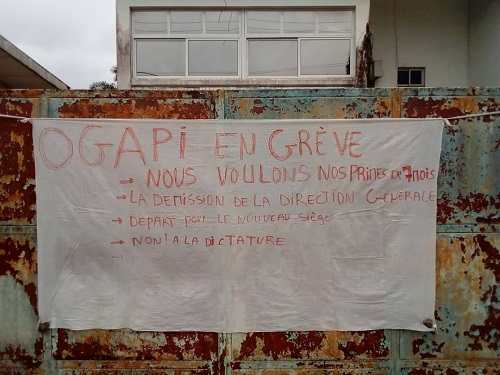 OGAPI EN GRÈVE
→ NOUS VOULONS NOS PRIMES DE 7 MOIS
→ LA DEMISSION DE LA DIRECTION GENERALE
→ DEPART POUR LE NOUVEAU SIÈGE
→ NON! A LA DICTATURE